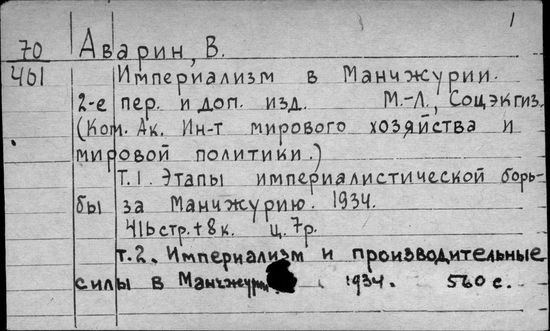 1
70 Аварин, В.
461 Империализм в Манчжурии.
2-е пер. и доп. изд. М.-Л., Соцэкгиз.
(Ком. Ак. Ин-т мирового хозяйства и
мировой политики.)
Т.1. Этапы империалистической борь-
бы за Манчжурию. 1934.
416 стр.+8к. ц. 7р.
т.2. Империализм и производительные
силы в 1934. 560 с.